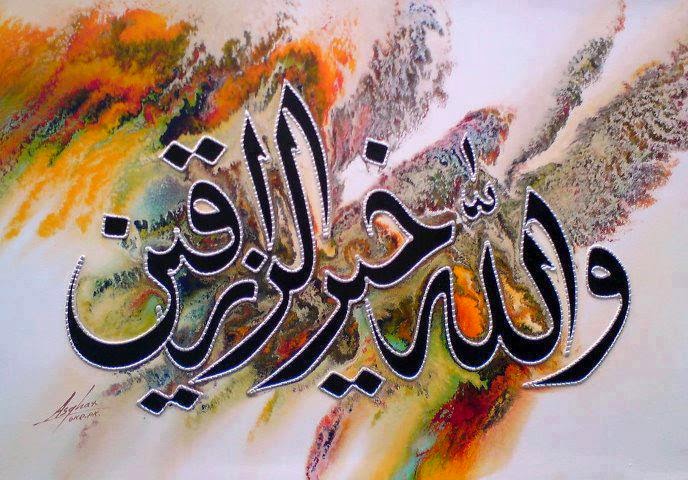 والله خير الرازقين
Asghar